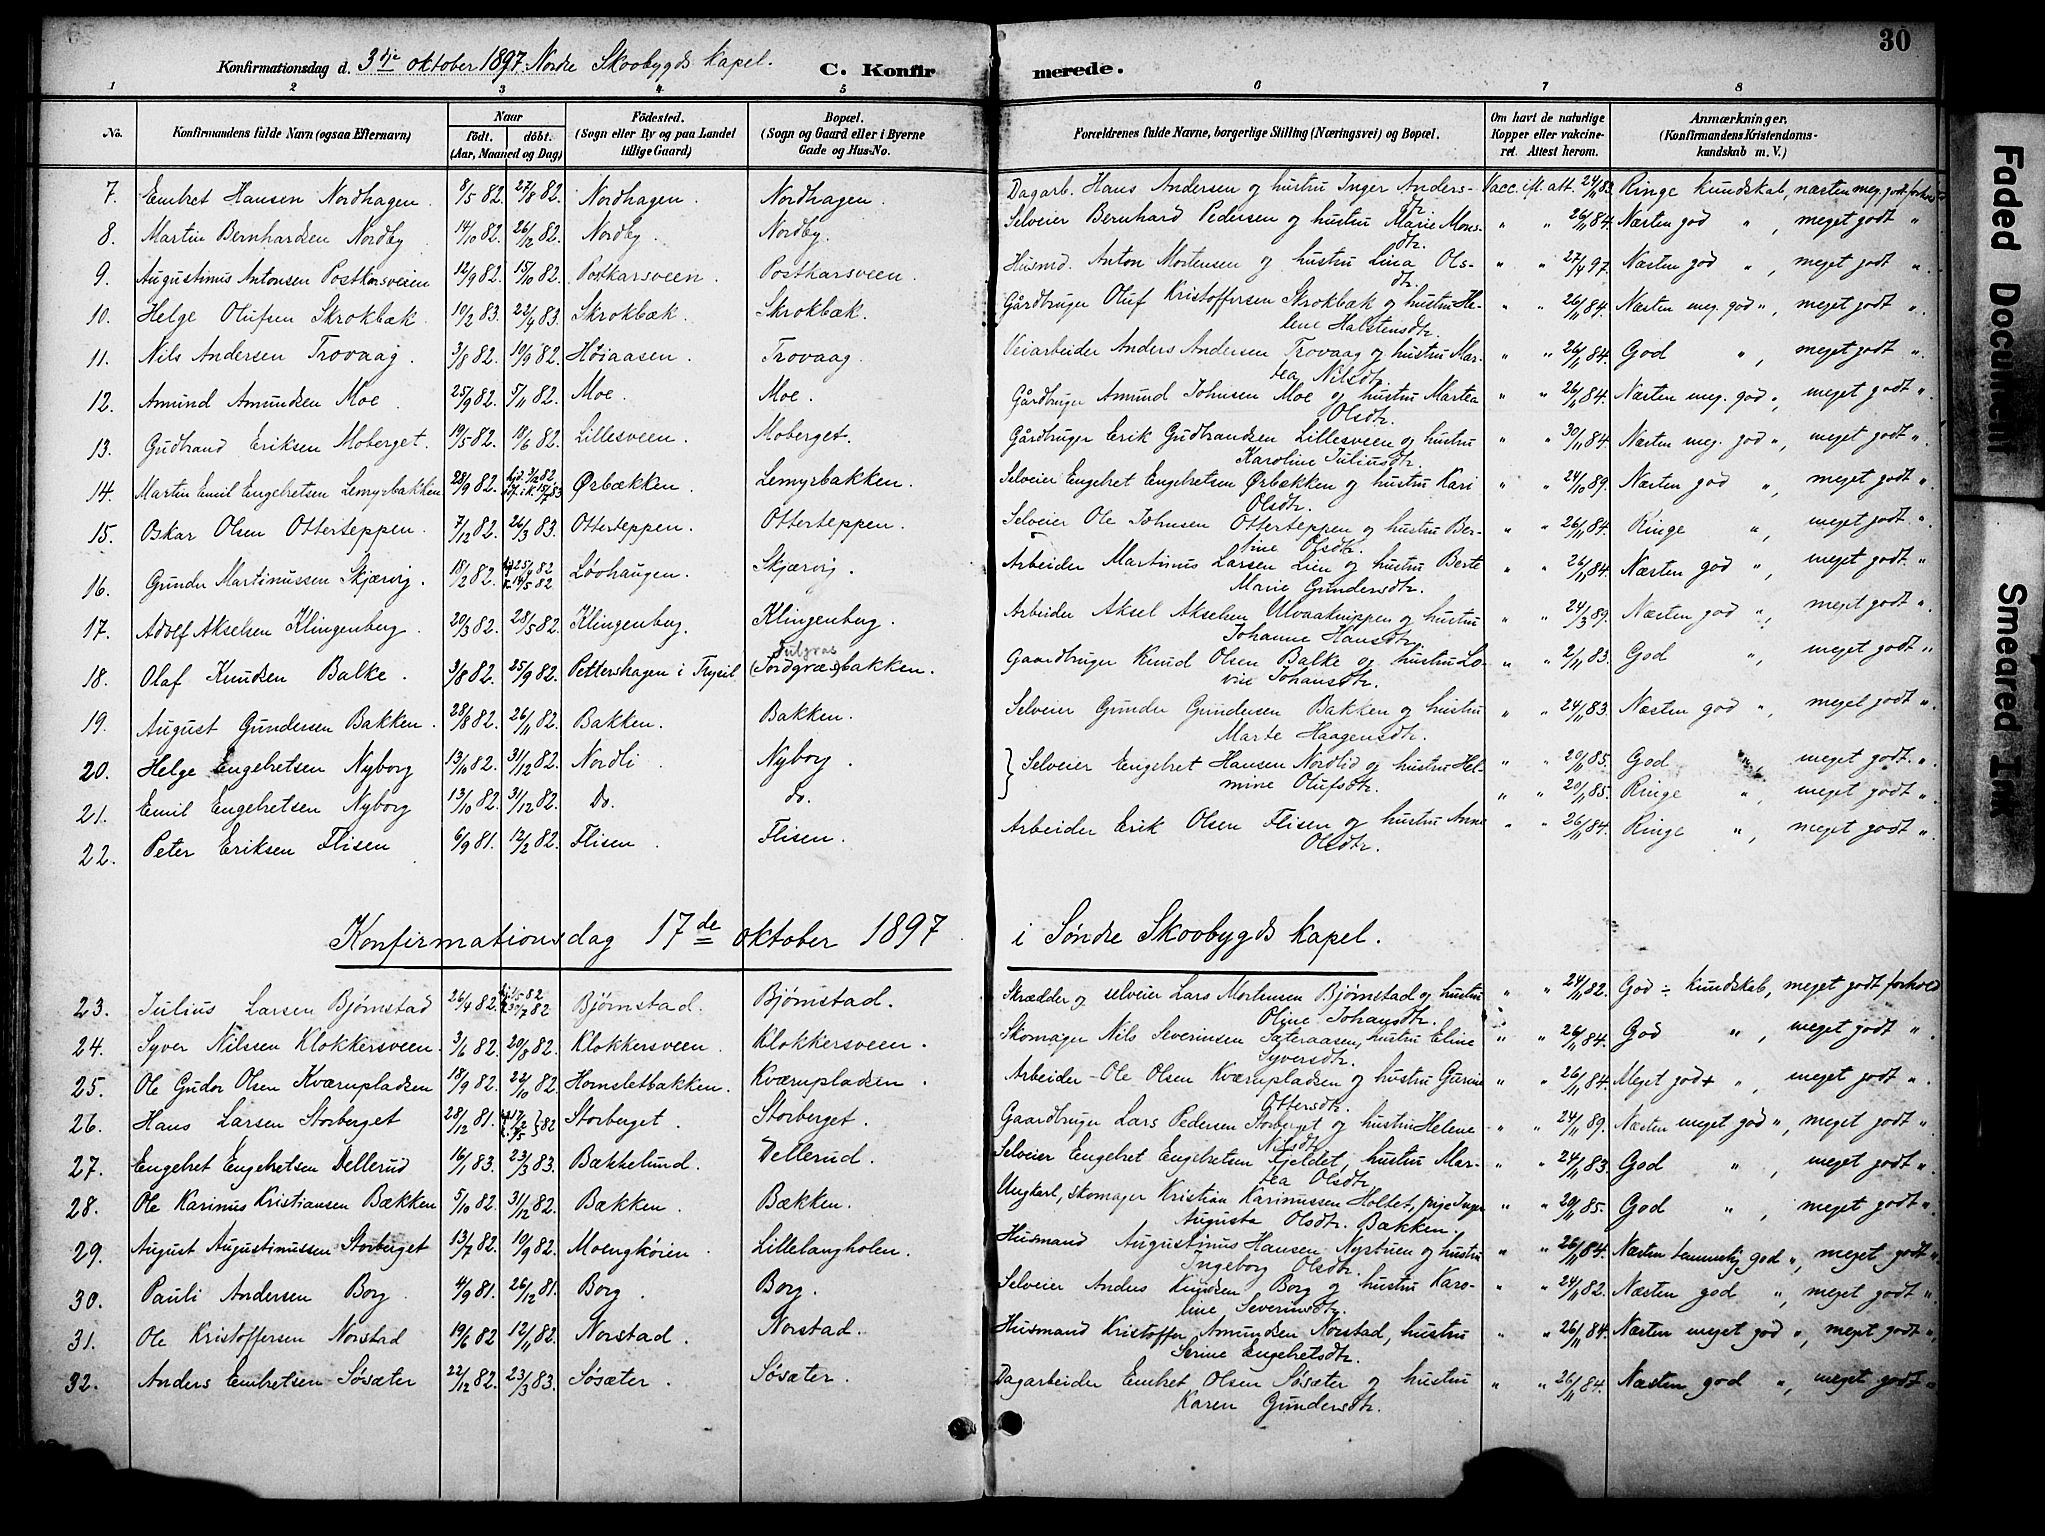 30
Konfirmationsdag d. 3dje oktober 1897. Nordre Skovbygds kapel. C. Konfirmerede.
1 2 3 4 5 6 7 8
No. Konfirmandens fulde Navn (ogsaa Efternavn) Naar født. døbt. (Aar, Maaned og Dag) Fødested. (Sogn eller By og paa Landet tillige Gaard) Bopæl. (Sogn og Gaard eller i Byerne Gade og Hus-No. Forældrenes fulde Navne, borgerlige Stilling (Næringsvei) og Bopæl. Om havt de naturlige Kopper eller vaccineret. Attest herom. Anmærkninger. (Konfirmandens Kristendomskundskab m. V.)
7. Embret Hansen Nordhagen. 8/5 82. 27/8 82. Nordhagen. Nordhagen. Dagarb. Hans Andersen og hustru Inger Andersdtr. Vacc. ifl. att. 24/11 83. Ringe kundskab, næsten meg. godt forhold
8. Martin Bernhardsen Nordby 14/10 82. 26/12 82. Nordby. Nordby. Selveier Bernhard Pedersen og hustru Marie Monsdtr. " " 26/11 84. Næsten god ", meget godt "
9. Augustinus Antonsen Postkarsveien 12/9 82. 15/10 82. Postkarsveen. Postkarsveen. Husmd. Anton Mortensen og hustru Lina Olsdtr. " " 27/4 97. Næsten god ", meget godt "
10. Helge Olufsen Skrokbæk. 10/2 83. 22/4 83. Skrokbæk. Skrokbæk. Gårdbruger Oluf Kristoffersen Skrokbæk og hustru Helene Halstensdtr. " " 26/11 84. Næsten meg. god ", meget godt "
11. Nils Andersen Trovaag. 3/8 82. 10/9 82. Høiaasen. Trovaag. Veiarbeider Anders Andersen Trovaag og hustru Martea Nilsdtr. " " 26/11 84. God ", meget godt "
12. Amund Amundsen Moe. 25/9 82. 5/11 82. Moe. Moe. Gårdbruger Amund Johnsen Moe og hustru Martea Olsdtr. " " 26/11 84. Næsten meg. god ", meget godt "
13. Gudbrand Eriksen Moberget. 19/5 82. 19/6 82. Lillesveen. Moberget. Gårdbruger Erik Gudbrandsen Lillesveen og hustru Karoline Juliusdtr. " " 30/11 84. Næsten meg. god ", meget godt "
14. Martin Emil Engebretsen Lemyrbakken 28/9 82. hjd. 3/12 82 i k. 15/7 83 Ørbækken. Lemyrbakken. Selveier Engebret Engebretsen Ørbækken og hustru Kari Olsdtr. " " 24/10 89. Næsten god ", meget godt "
15. Oskar Olsen Otterteppen. 7/12 82. 26/3 83. Otterteppen. Otterteppen. Selveier Ole Johnsen Otterteppen og hustru Bertine Olsdtr. " " 26/11 84. Ringe ", meget godt "
16. Gunder Martinussen Skjærvig. 18/2 82. 25/4 82 14/5 82 Løvhaugen. Skjærvig. Arbeider Martinus Larsen Lien og hustru Berte Marie Gundersdtr. " " 26/11 84. Næsten god ", meget godt "
17. Adolf Akselsen Klingenberg. 20/3 82. 28/5 82. Klingenberg. Klingenberg. Arbeider Aksel Akselsen Ulvaaknippen og hustru Johanne Hansdtr. " " 24/3 89. Næsten god ", meget godt "
18. Olaf Knudsen Balke. 3/8 82. 25/9 82. Pettershagen i Trysil (Jordgræsbakken. Gaardbruger Knud Olsen Balke og hustru Lovise Johansdtr. " " 2/11 83. God ", meget godt "
19. August Gundersen Bakken. 28/8 82. 26/11 82. Bakken. Bakken. Selveier Gunder Gundersen Bakken og hustru Marte Haagensdtr. " " 24/11 83. Næsten god ", meget godt "
20. Helge Engebretsen Nyborg 13/10 82. 31/12 82. Nordli. Nyborg. } Selveier Engebret Hansen Nordlid og hustru Helmine Olufsdtr. " " 20/11 85. God ", meget godt "
21. Emil Engebretsen Nyborg 13/10 82. 31/12 82. Do. do. " " 20/11 85. Ringe ", meget godt "
22. Peter Eriksen Flisen 6/9 81. 12/2 82. Flisen. Flisen. Arbeider Erik Olsen Flisen og hustru Anne Olsdtr. " " 26/11 84. Ringe ", meget godt "
Konfirmationsdag 17de oktober 1897 i Søndre Skovbygds kapel.
23. Julius Larsen Bjørnstad 26/4 82. Bjørnstad. Bjørnstad. Skrædder og selveier Lars Mortensen Bjørnstad og hustru Oline Johansdtr. " " 24/11 82. God ÷ kundskab, meget godt forhold
24. Syver Nilssen Klokkersveen. 3/6 82. 20/8 82. Klokkersveen. Klokkersveen. Skomager Nils Severinsen Sæteraasen, hustru Eline Syversdtr. " " 26/11 84. God ", meget godt "
25. Ole Gudor Olsen Kværnpladsen 18/9 82. 22/10 82. Hornsletbakken. Kværnpladsen. Arbeider Ole Olsen Kværnpladsen og hustru Gurine Ottersdtr. " " 26/11 84. Meget god + ", meget godt "
26. Hans Larsen Storberget 28/12 81. 82 Storberget. Storberget. Gaardbruger Lars Pedersen Storberget og hustru Helene Nilsdtr. " " 24/11 89. Næsten meget god ", meget godt "
27. Engebret Engebretsen Dellerud 16/1 83. 23/3 83. Bækkelund. Dellerud. Selveier Engebret Engebretsen Fjeldet, hustru Martea Olsdtr. " " 24/11 83. God ", meget godt "
28. Ole Karinus Kristiansen Bækken 5/10 82. 31/12 82. Bækken. Bækken. Ungkarl, skomager Kristian Karinussen Holtet, pige Inger Augusta Olsdtr. Bækken. " " 20/11 85. God ", meget godt "
29. August Augustinussen Storberget 13/7 82. 10/9 82. Moengkøien. Lillelangholen. Husmand Augustinus Hansen Nystuen og hustru Ingeborg Olsdtr. " " 26/11 84. Næsten temmelig god ", meget godt "
30. Pauli Andersen Borg. 4/9 81. 26/12 81. Borg. Borg. Selveier Anders Knudsen Borg og hustru Karoline Severinsdtr. " " 24/11 82. Næsten god ", meget godt "
31. Ole Kristoffersen Norstad 19/6 82. 12/11 82. Norstad. Norstad. Husmand Kristoffer Amundsen Norstad, hustru Serine Engebretsdtr. " " 26/11 84. Næsten meget god ", meget godt "
32. Anders Embretsen Søsæter 22/12 82. 23/3 83. Søsæter. Søsæter. Dagarbeider Embret Olsen Søsæter og hustru Karen Gundersdtr. " " 26/11 84. Næsten god ", meget godt "
Faded Document
Smeared Ink